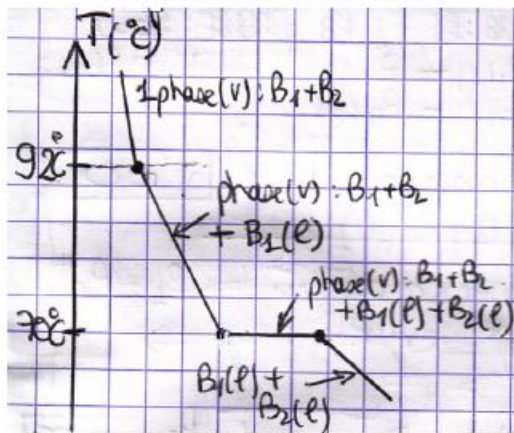 T(°C)
1phase(v): B₁+B₂
92°C
phase(v): B₁+B₂
+ B₁(l)
phase(v): B₁+B₂
+B₁(l)+B₂(l)
70°C
B₁(l)+
B₂(l)